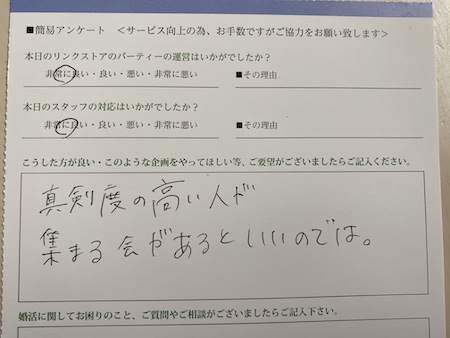 ■簡易アンケート ＜サービス向上の為、お手数ですがご協力をお願い致します＞
本日のリンクストアのパーティーの運営はいかがでしたか？
非常に良い・良い・悪い・非常に悪い ■その理由
本日のスタッフの対応はいかがでしたか？
非常に良い・良い・悪い・非常に悪い ■その理由
こうした方が良い・このような企画をやってほしい等、ご要望がございましたらご記入ください。
真剣度の高い人が
集まる会があるといいのでは。
婚活に関してお困りのこと、ご質問やご相談がございましたらご記入下さい。